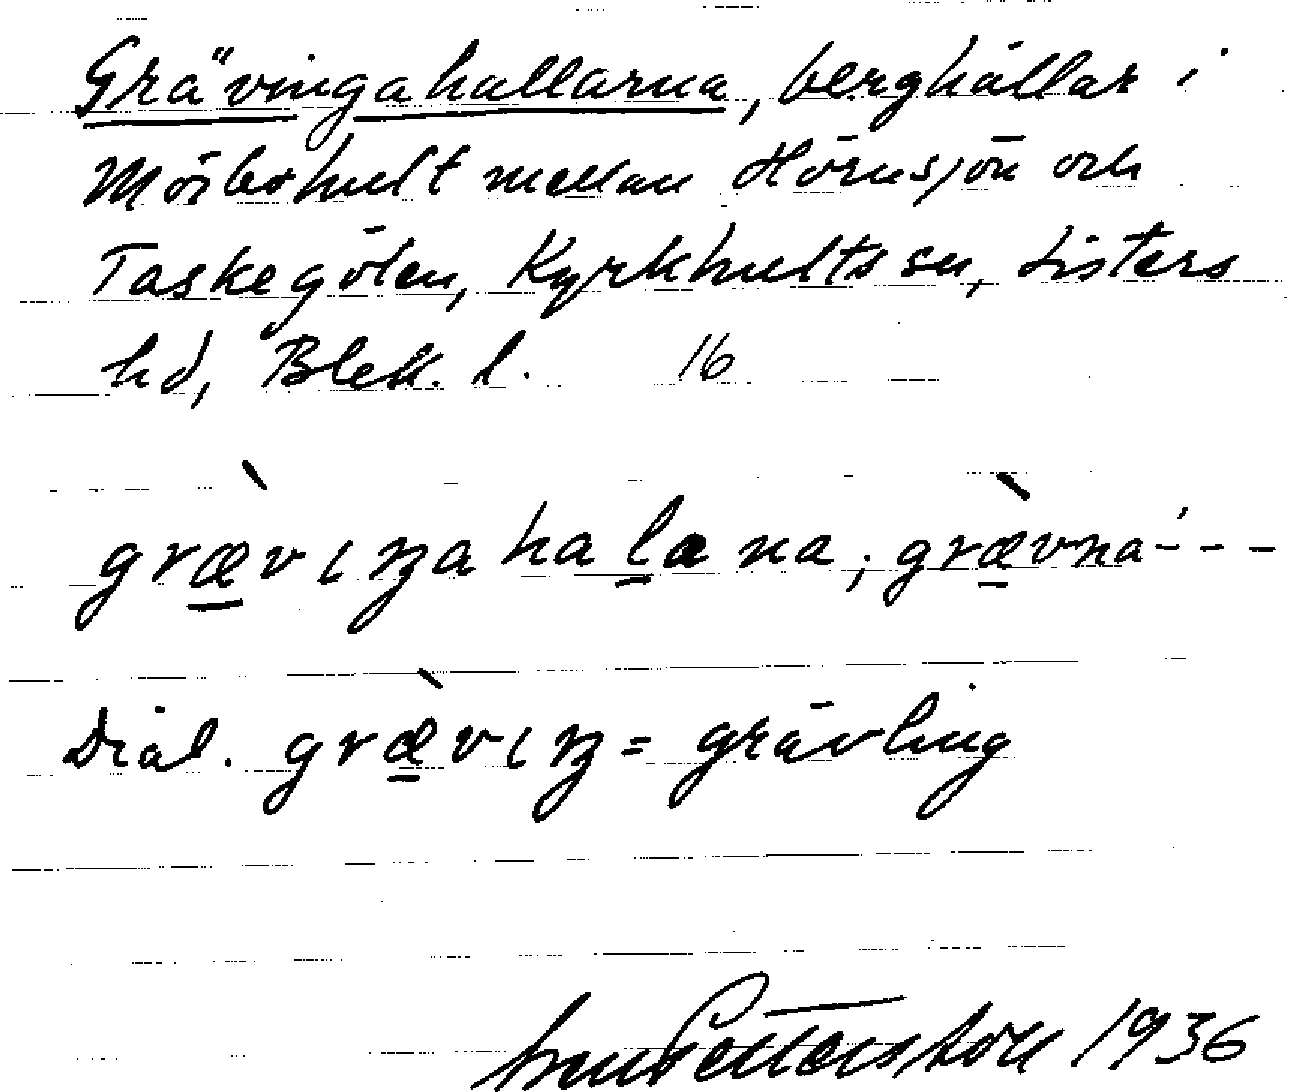 Grävingahallarna, berghällar i
Mörbohult mellan Hörnsjön och
Taskegölen, Kyrkhults sn, Listers
hd, Blek. l. 16
græ̀vɩŋahalana; græ̀vna- - - -
Dial. græ̀vɩŋ = grävling
1936